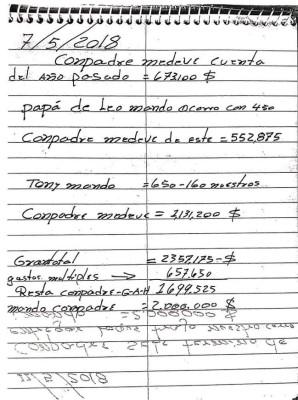 7/5/2018
Conpadre medeve cuenta
del año pasado = 673100 $
papá de Leo mando ocorro con 450
Conpadre medeve de este = 552,875
Tony mando = 650-160 nuestros
Conpadre medeve = 2,131,200 $
Grantotal = 2357,175-$
gastos multiples → 657,650
Resta conpadre-G-A-H 1699,525
mando conpadre = 2.000.000 $